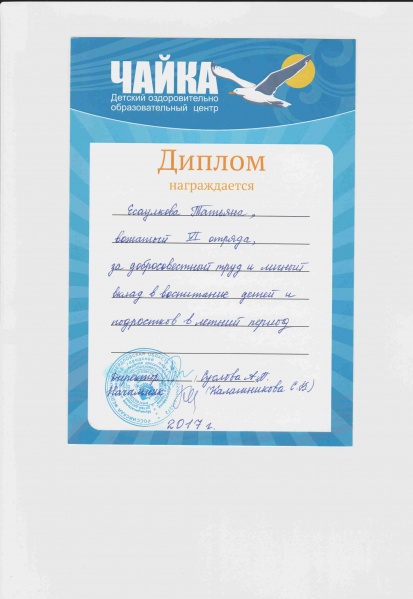 ЧАЙКА
Детский оздоровительно
образовательный центр
Диплом
награждается
Есаулкова Татьяна,
вожатый VI отряда,
за добросовестный труд и личный
вклад в воспитание детей и
подростков в летний период
Директор Суслова А.Ю.
Начальник (Калашникова С.В)
2017 г.